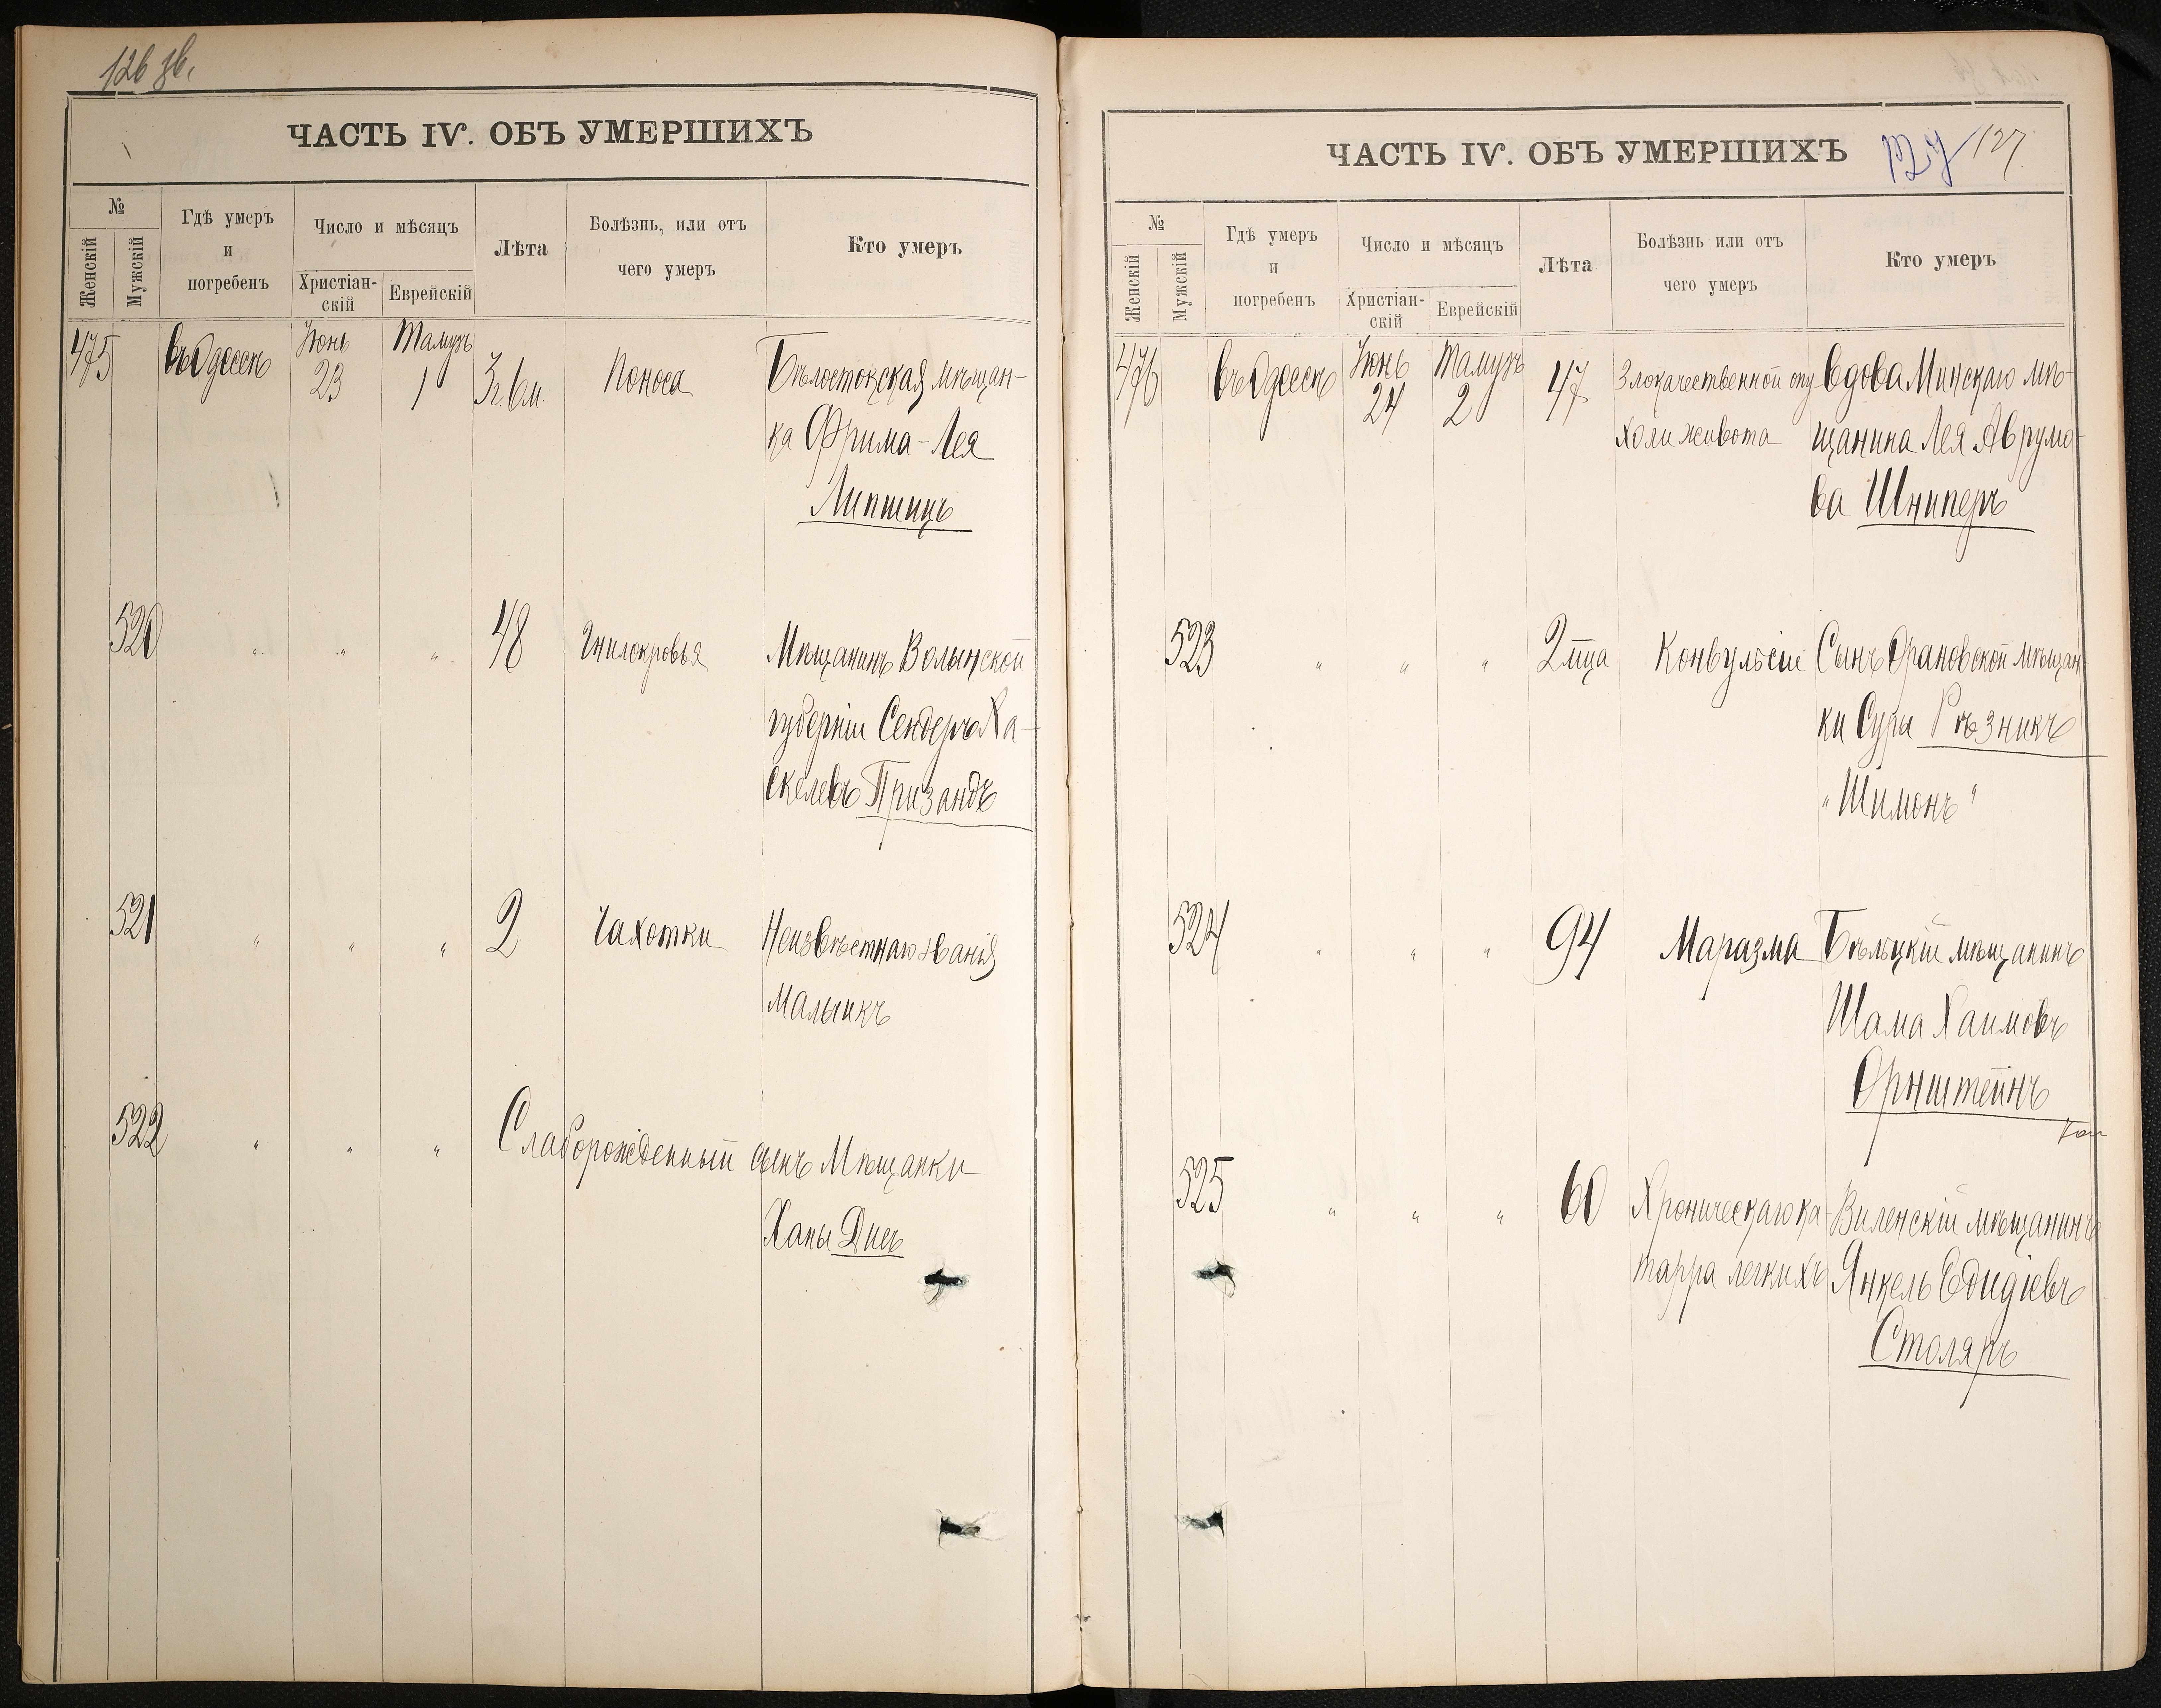 126 зв.
ЧАСТЬ IV. ОБЪ УМЕРШИХЪ
№
Женскій
Мужскій
Гдѣ умеръ
и
погребенъ
Число и мѣсяцъ
Христіан-
скій
Еврейскій
Лѣта
Болѣзнь, или отъ
чего умеръ
Кто умеръ
475 въ Одессѣ Іюнь 23 Тамузъ 1 3 г. 6 м. Поноса Бѣлостокская мѣщан-
ка Фрима-Лея
Липшицъ
520 " " " 48 Гнилокровья Мѣщанинъ Волынской
губерніи Сендеръ Ха-
скелевъ Призандъ
521 " " " 2 Чахотки Неизвѣстнаго званія
Мальчикъ
522 " " " Слаборожденный сынъ Мѣщанки
Ханы Дисъ
ЧАСТЬ IV. ОБЪ УМЕРШИХЪ
127 127
№
Женскій
Мужскій
Гдѣ умеръ
и
погребенъ
Число и мѣсяцъ
Христіан-
скій
Еврейскій
Лѣта
Болѣзнь или отъ
чего умеръ
Кто умеръ
476 въ Одессѣ Іюнь 24 Тамузъ 2 47 Злокачественной опу Вдова Минскаго мѣ-
холи живота щанина Лея Аврумо-
ва Шниперъ
523 " " " 2 м̅ца Конвульсіи Сынъ Орановской мѣщан-
ки Сура Рѣзникъ
"Шимонъ"
524 " " " 94 Маразма Бѣльцкій мѣщанинъ
Шама Хаимовъ
Орнштейнъ
525 " " " 60 Хроническаго ка- Виленскій мѣщанинъ
тарра легкихъ Янкель Едидіевъ
Столяръ